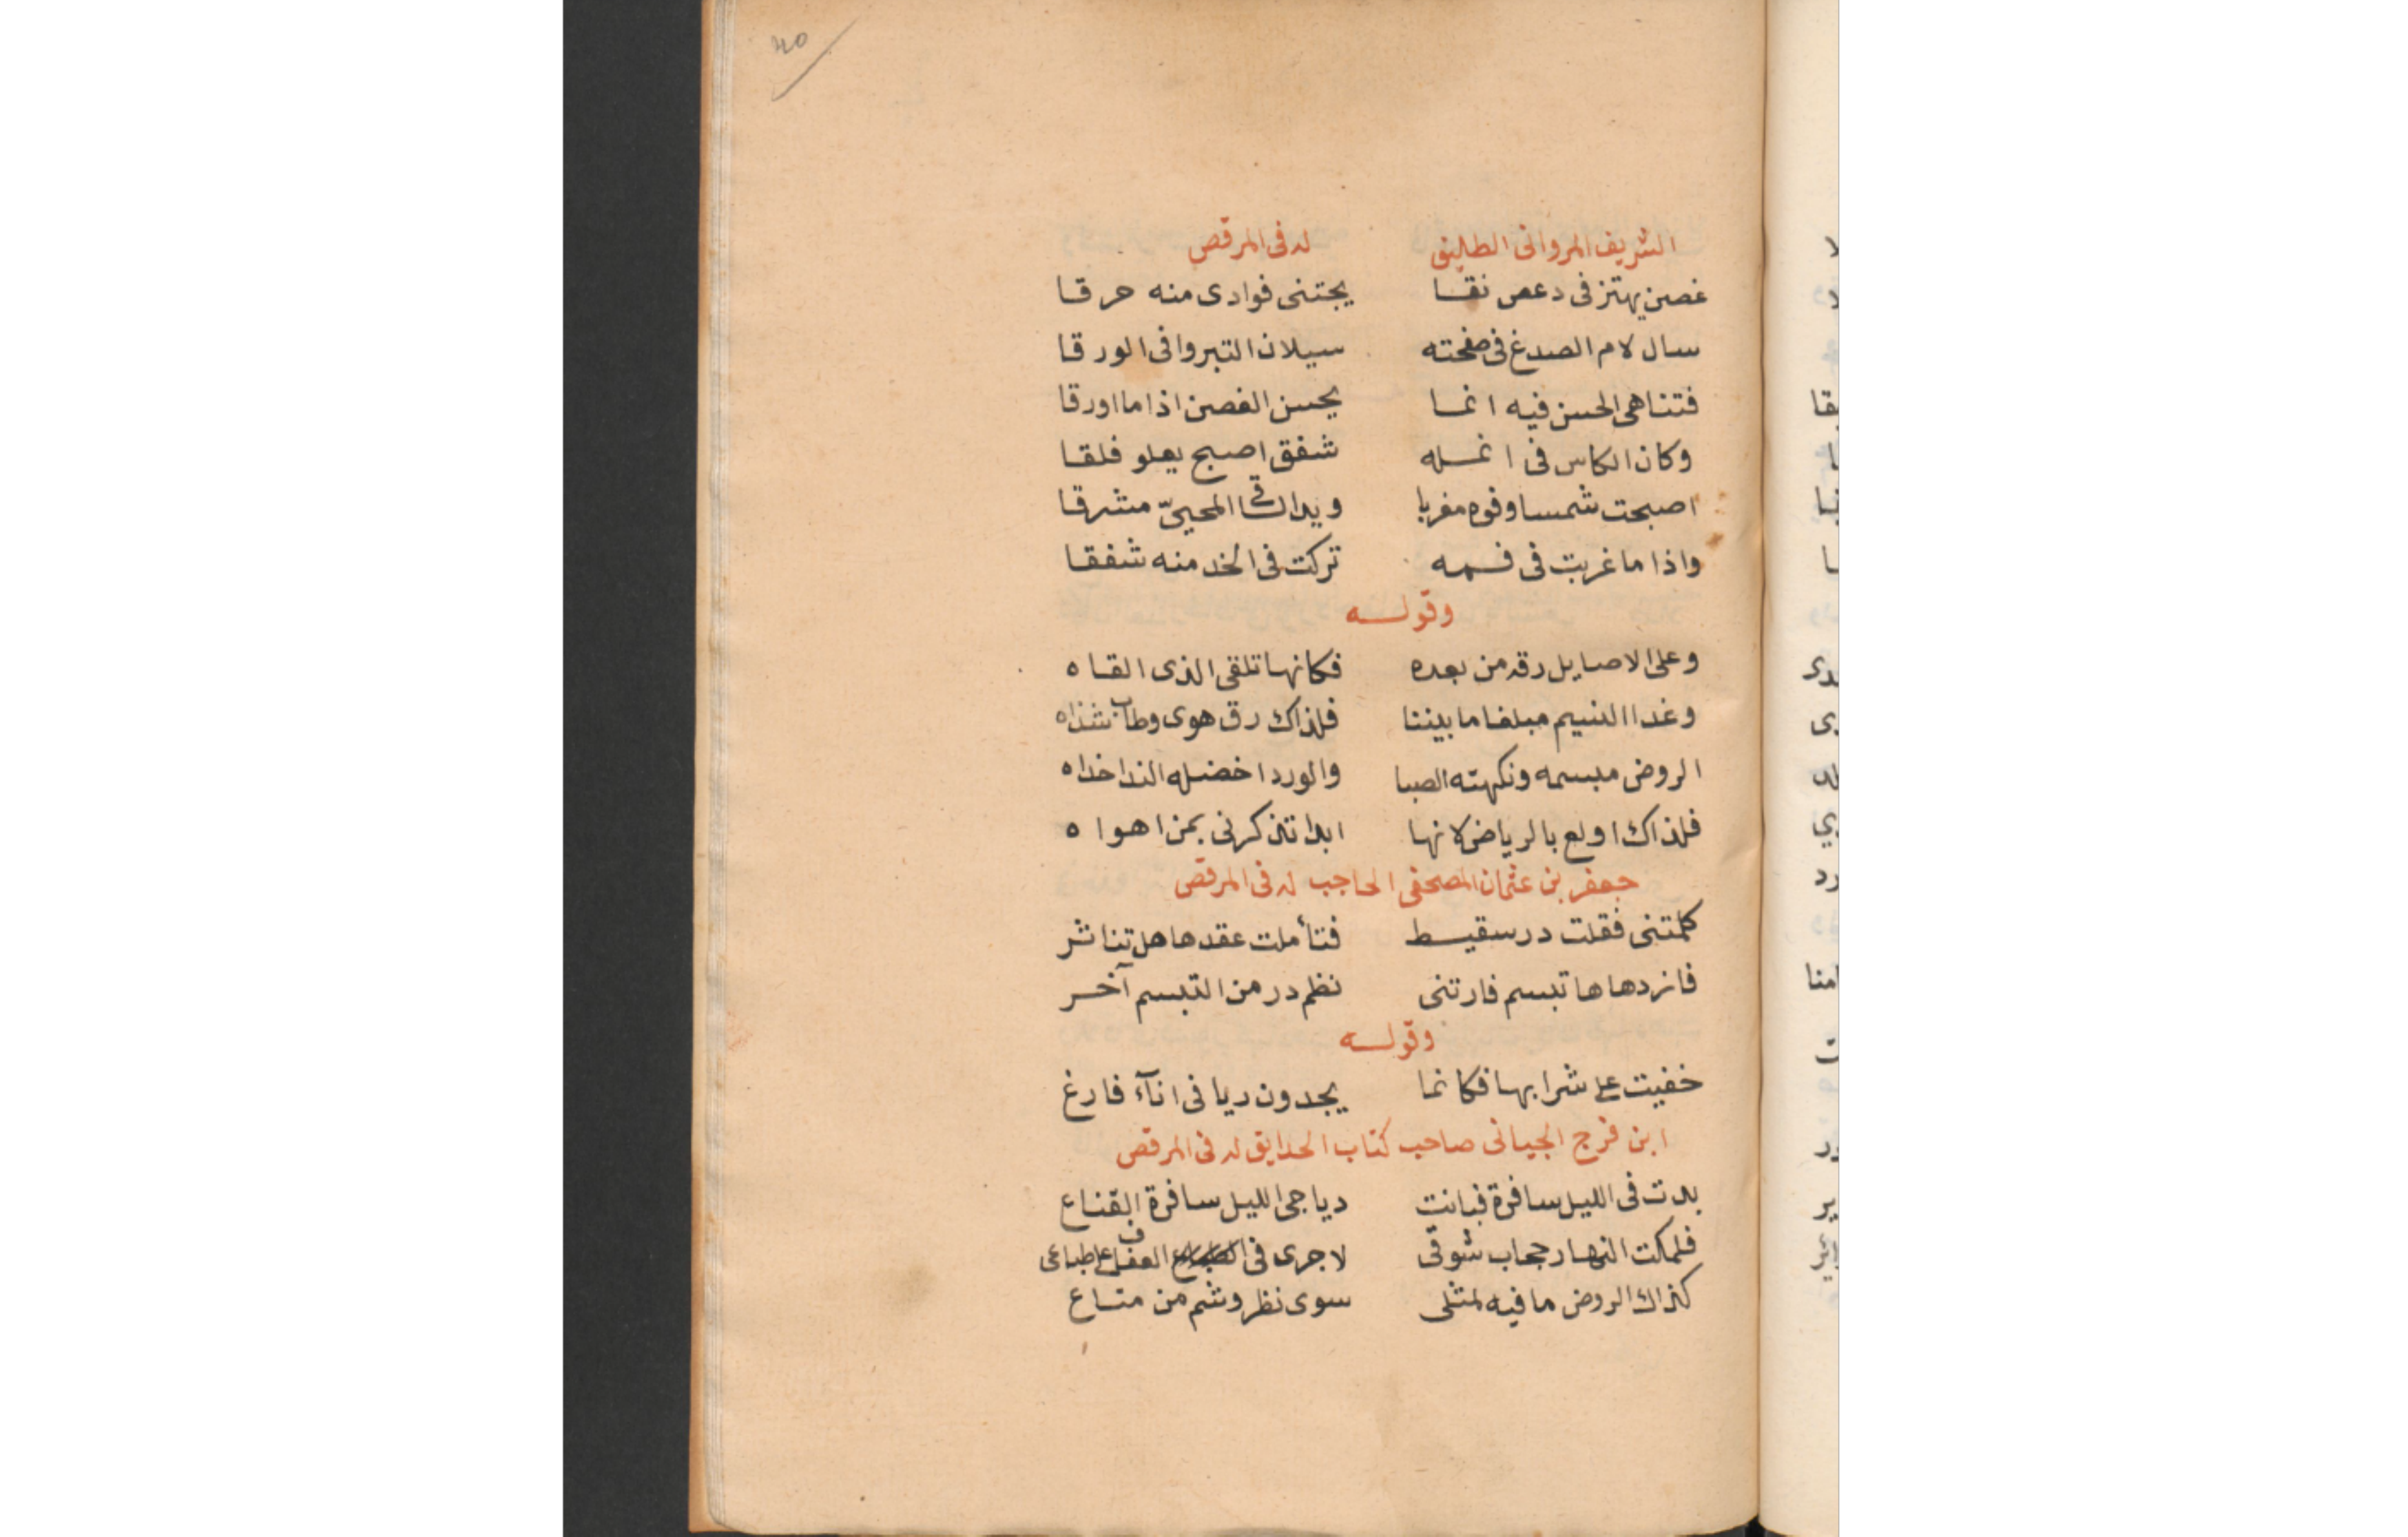 40
الشريف المروانى الطليق له فى المرقص
غصن يهتز فى دعص نقا يجتنى فوادى منه حرقا
سال لام الصدغ فى صفحته سيلان التبر وافى الورقا
فتناهى الحسن فيه انما يحسن الغصن اذا ما اورقا
وكان الكاس فى انمله شفق اصبح يعلو فلقا
اصبحت شمسا وفوه مغربا ويدا الساقى المحيىّ مشرقا
واذا ما غربت فى فمه تركت فى الخد منه شفقا
وقوله
وعلى الاصايل رقه من بعده فكانها تلقى الذى القاه
وغدا النسيم مبلغا ما بيننا فلذاك رق هوى وطاب شذاه
الروض مبسمه ونكهته الصبا والورد اخضله الندا خداه
فلذاك اولع بالرياض لانها ابدا تذكرنى بمن اهواه
جعفر بن عثمان المصحفى الحاجب له فى المرقص
كلمتنى فقلت در سقيط فتأملت عقدها هل تناثر
فازدهاها تبسم فارتنى نظم در من التبسم آخر
وقوله
خفيت على شرابها فكانما يجدون ريا فى انآء فارغ
ابن فرج الجيانى صاحب كتاب الحدايق له فى المرقص
بدت فى الليل سافرة فبانت دياجى الليل سافرة القناع
فلمكت النهار حجاب شوقى لاجرى فى العفاف على طباعى
كذاك الروض ما فيه لمثلى سوى نظر وشم من متاع